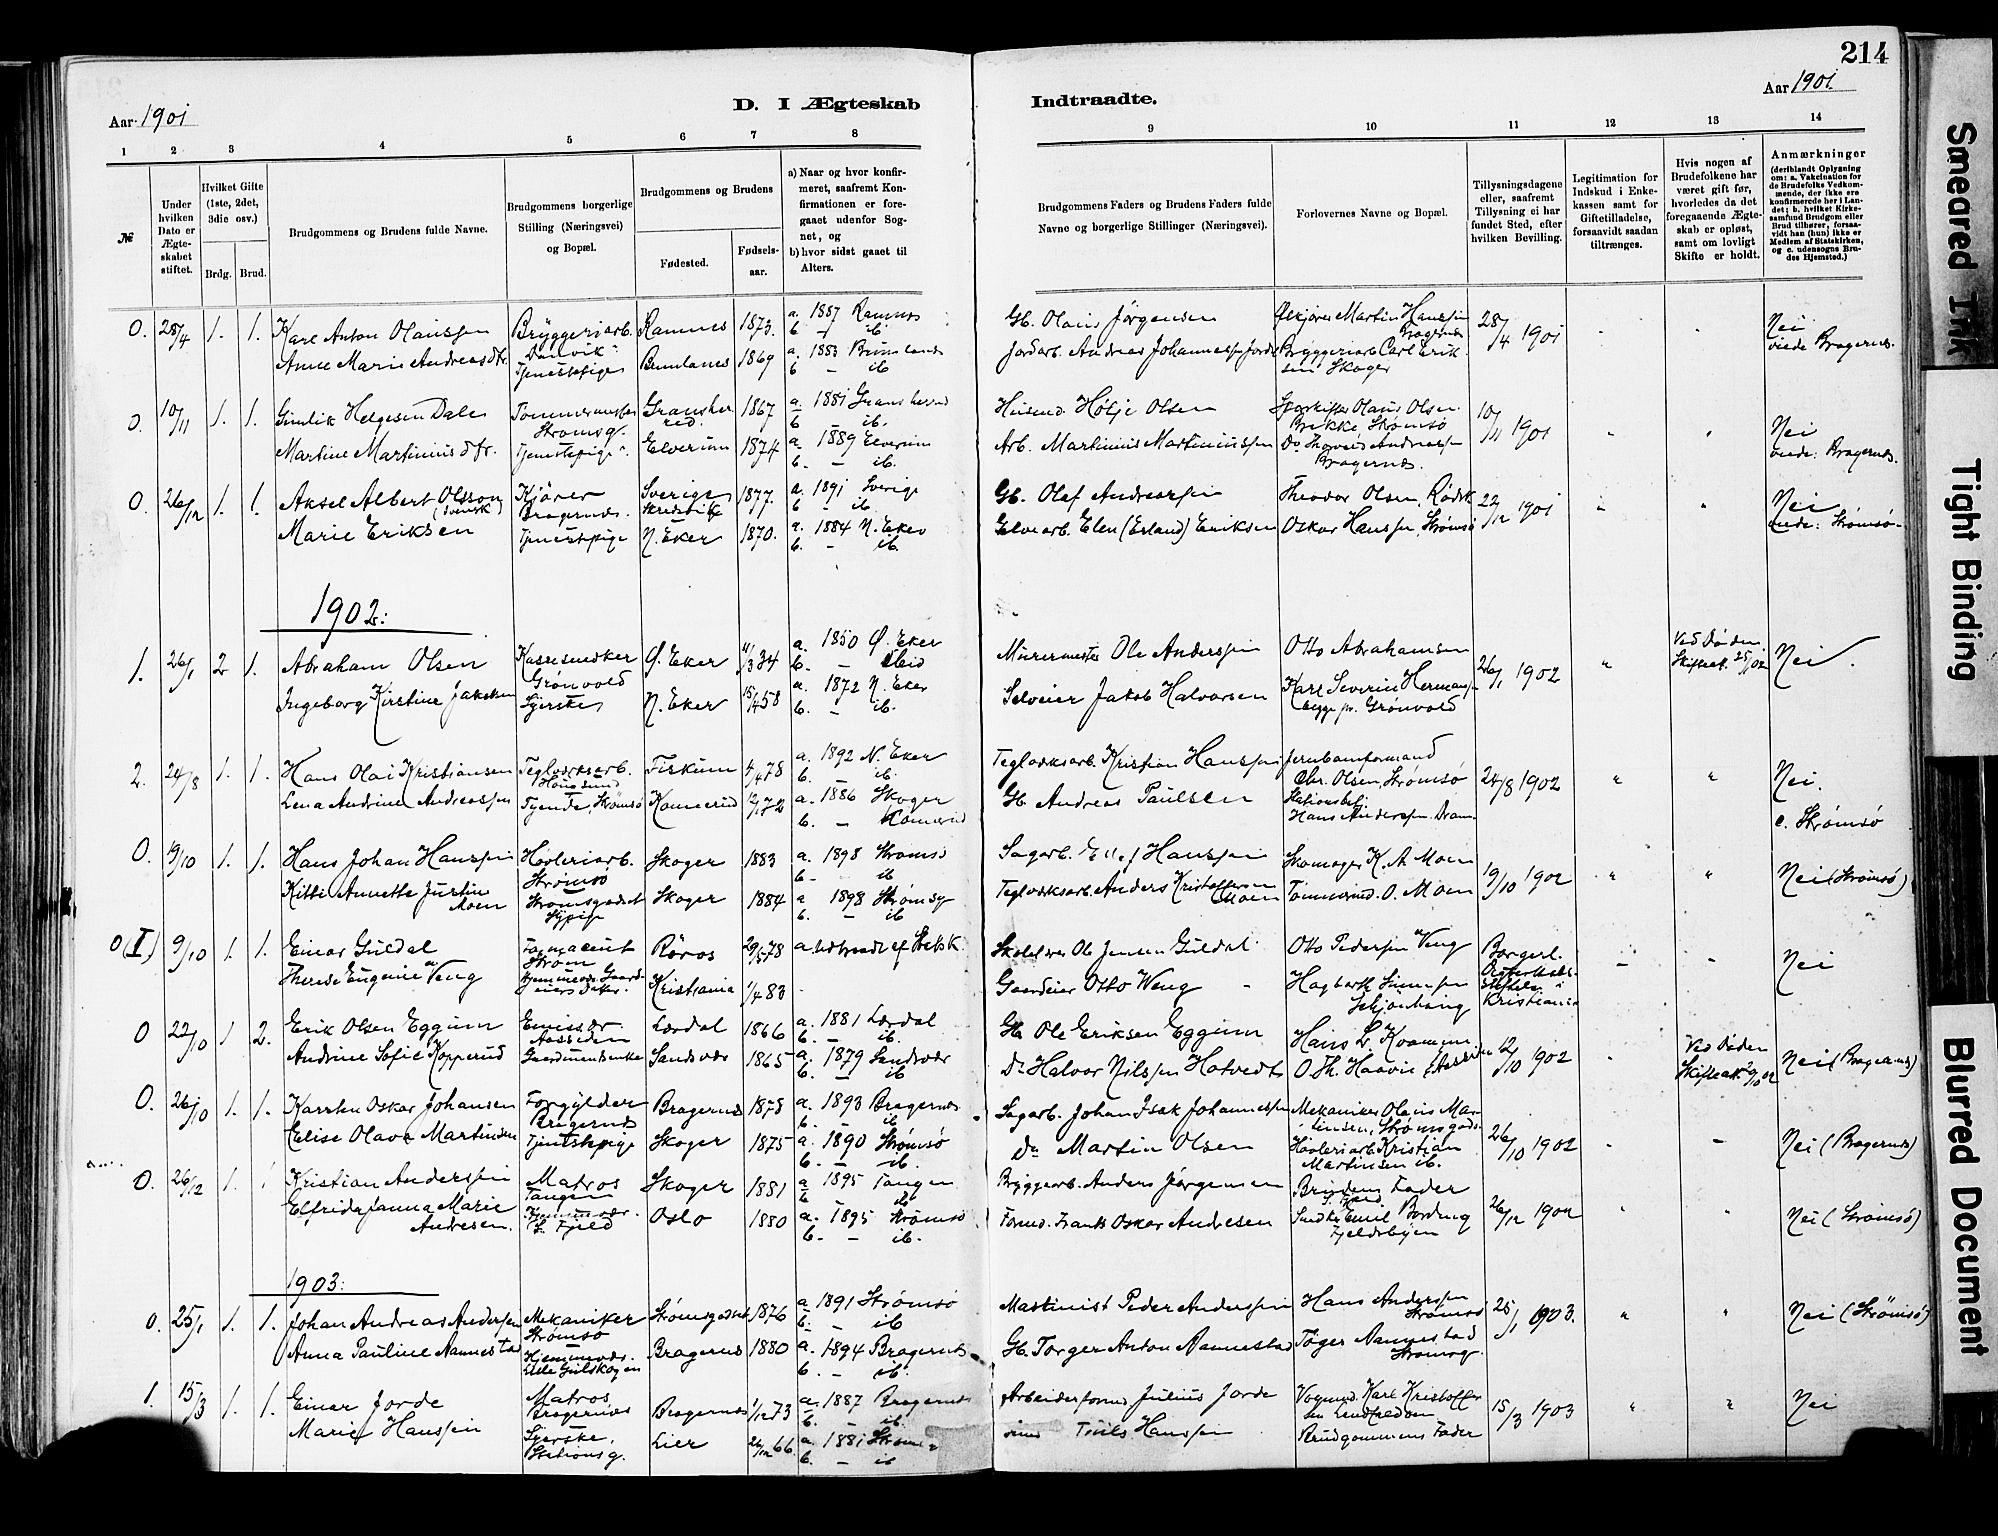 214
Aar 1901
D. I Ægteskab
Indtraadte.
Aar 1901
1 2 3 4 5 6 7 8 9 10 11 12 13 14
№
Under hvilken Dato er Ægteskabet stiftet.
Hvilket Gifte (1ste, 2det, 3die osv.)
Brdg. Brud.
Brudgommens og Brudens fulde Navne.
Brudgommens borgerlige Stilling (Næringsvei) og Bopæl.
Brudgommens og Brudens
Fødested.
Fødsels-aar.
a) Naar og hvor konfirmeret, saafremt Konfirmationen er foregaaet udenfor Sognet, og
b) hvor sidst gaaet til Alters.
Brudgommens Faders og Brudens Faders fulde Navne og borgerlige Stillinger (Næringsvei).
Forlovernes Navne og Bopæl.
Tillysningsdagene eller, saafremt Tillysning ei har fundet Sted, efter hvilken Bevilling.
Legitimation for Indskud i Enkekassen samt for Giftetilladelse, forsaavidt saadan tiltrænges.
Hvis nogen af Brudefolkene har været gift før, hvorledes da det foregaaende Ægteskab er opløst, samt om lovligt Skifte er holdt.
Anmærkninger
(deriblandt Oplysning om: a. Vakcination for de Brudefolks Vedkommende, der ikke ere konfirmerede her i Landet; b. hvilket Kirkesamfund Brudgom eller Brud tilhører, forsaavidt han (hun) ikke er Medlem af Statskirken, og c. udensogns Brudes Hjemsted.)
0. 28/4 1. 1. Karl Anton Olaussen Bryggeriarb. Ramnes 1873. a. 1887 Ramnes Gb. Olaus Jørgensen Martin Hanssen Bragernes 28/4 1901 Nei
Anne Marie Andreasdtr. Tjenestepige 1869 a. 1883 b. – ib Andreas Johannessen Bryggeriarb Carl Eriksen Skoger viede Bragernes.
0. 10/11 1. 1. Gunlik Helgesen Dale Strømsg. Gransherred. 1867 a. 1881 Gransherred b ib. Husmd. Olsen Olaus Olsen Strømsø 10/11 1901 Nei
Martine Martiniusdtr. Tjenestepige Elverum 1874 a. 1889 Elverum b. – ib. Arb. Martinius Martiniussen Do Andreassen Bragernæs. viede: Bragernes.
0. 26/12 1. 1. Aksel Albert Olsson (svensk) Kjører Bragernæs. Sverige 1877. a. 1891 Sverige b – ib. Gb. Olaf Andreassen Theodor Olsen, 22/12 1901 Nei
Marie Eriksen Tjenestepige N. Eker 1870. a. 1884 N. Eker b. – ib. Elvearb. Elen (Erland) Eriksen Oskar Hanssen, Strømsø viede: Strømsø.
1902:
1. 26/1 2 1. Abraham Olsen Grønvold Ø. Eker 11/3 34 a. 1850 Ø. Eker Murermester Ole Anderssen Otto Abrahamsen 26/1 1902 Ved Døden Skifteat. 25/1 02 Nei.
Ingeborg Kirstine Jakobsen Syerske N. Eker 15/4 58 a. 1872 N. Eker b. – ib. Selveier Jakob Halvorsen Karl Severin begge pr. Grønvold
2. 24/8 1. 1. Hans Olai Kristiansen Teglverksarb. Hougsund Fiskum 4/4 78 a. 1892 N. Eker b. – ib. Teglverksarb. Kristian Hanssen Jernbaneformand Chr. Olsen, Strømsø 24/8 1902 Nei.
Lena Andrine Andreassen Tjende, Strømsø Konnerud 12/1 72 a. 1886 Skoger b. – Konnerud Gb. Andreas Paulsen Hans Anderssen. Dram. c. Strømsø
0. 19/10 1. 1. Hans Johan Hanssen Høvleriarb. Strømsø Skoger 1883 a. 1898 Strømsø b – ib Sagarb. Hanssen Skomager K. A. Moen 19/10 1902 Nei (Strømsø)
Kitti Annette Justine Moen Strømsgodset Skoger 1884 a 1898 Strømsg b. – ib Teglverksarb. Anders Kristoffersen Moen Tømmermd. O. Moen
0 (I) 9/10 1. 1. Einar Guldal Farmaceut Strøm Røros 29/5 78 a. udtraadt af Statsk. Ole Jensen Guldal. Otto Pedersen Veng Borgerl. Kristiania Nei
Therese Eugenie Veng Kristiania 1/4 83 Gaardeier Otto Weng
0 22/10 1 2. Erik Olsen Eggum Emissær. Aassiden Lærdal 1866 a. 1881 Lærdal b. – ib. Gb Ole Eriksen Eggum Hans L. 12/10 1902 Ved Døden Skifteat. 02 Nei (Bragernæs)
Andrine Sofie Kopperud Gaardmandsenke Sandsvær 1865 a. 1879 Sandsvær b. – ib Do Halvor Nilssen Hotvedt O. Th. Haavie, Aassiden
0. 26/10 1. 1. Karsten Oskar Johansen Forgylder Bragernæs Bragernæs 1878 a. 1893 Bragernæs b. – ib Sagarb. Johan Isak Johannessen Mekaniker Olaus Martinsen, Strømsgods 26/10 1902 Nei (Bragernæs)
Elise Olava Martinsen Tjenestepige Skoger 1875 a. 1890 Strømsø b. – ib. do Martin Olsen Høvleriarb. Kristian Martinsen ib.
0. 26/12 1. 1 Kristian Anderssen Matros Tangen Skoger 1881 a 1895 Tangen b ib. Bryggearb. Anders Jørgensen Brudens Fader 26/12 1902 Nei (Strømsø)
Elfrida Janna Marie Andresen. Fjeld Oslo 1880 a. 1895 Strømsø b. – ib. Formd. Frants Oskar Andresen Emil Bording
1903:
0. 25/1 1. 1. Johan Andreas Anderssen Mekaniker Strømsø Strømsgodset 1876 a. 1891 Strømsø b. – ib Maskinist Peder Anderssen Hans Anderssen Strømsø 25/1 1903. Nei (Strømsø)
Anna Pauline Nannestad Hjemmevær. Lille Gulskogen Bragernæs 1880 a. 1894 Bragernæs b. – ib. Gb. Torger Anton Nannestad Nannestad Strømsg.
1. 15/3 1. 1. Einar Jorde Matros, Bragernæs Bragernæs 1/12 73 a. 1887 Bragernæs b. – ib. Arbeiderformd Julius Jorde Karl Kristoffersen 15/3 1903 Nei
Marie Hanssen Syerske, Stationsg. Lier 26/12 66. a. 1881 b. – ib Hanssen Brudgommens Fader
Smeared Ink
Tight Binding
Blurred Document